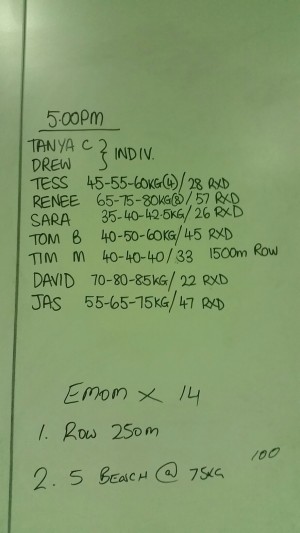 5:00PM
TANYA C } INDIV.
DREW
TESS 45-55-60KG(4)/28 RXD
RENEE 65-75-80KG(8)/57 RXD
SARA 35-40-42.5KG/26 RXD
TOM B 40-50-60KG/45 RXD
TIM M 40-40-40/33 1500m ROW
DAVID 70-80-85KG/22 RXD
JAS 55-65-75KG/47 RXD
EMOM X 14
1. ROW 250m
100
2. 5 BENCH @ 75KG